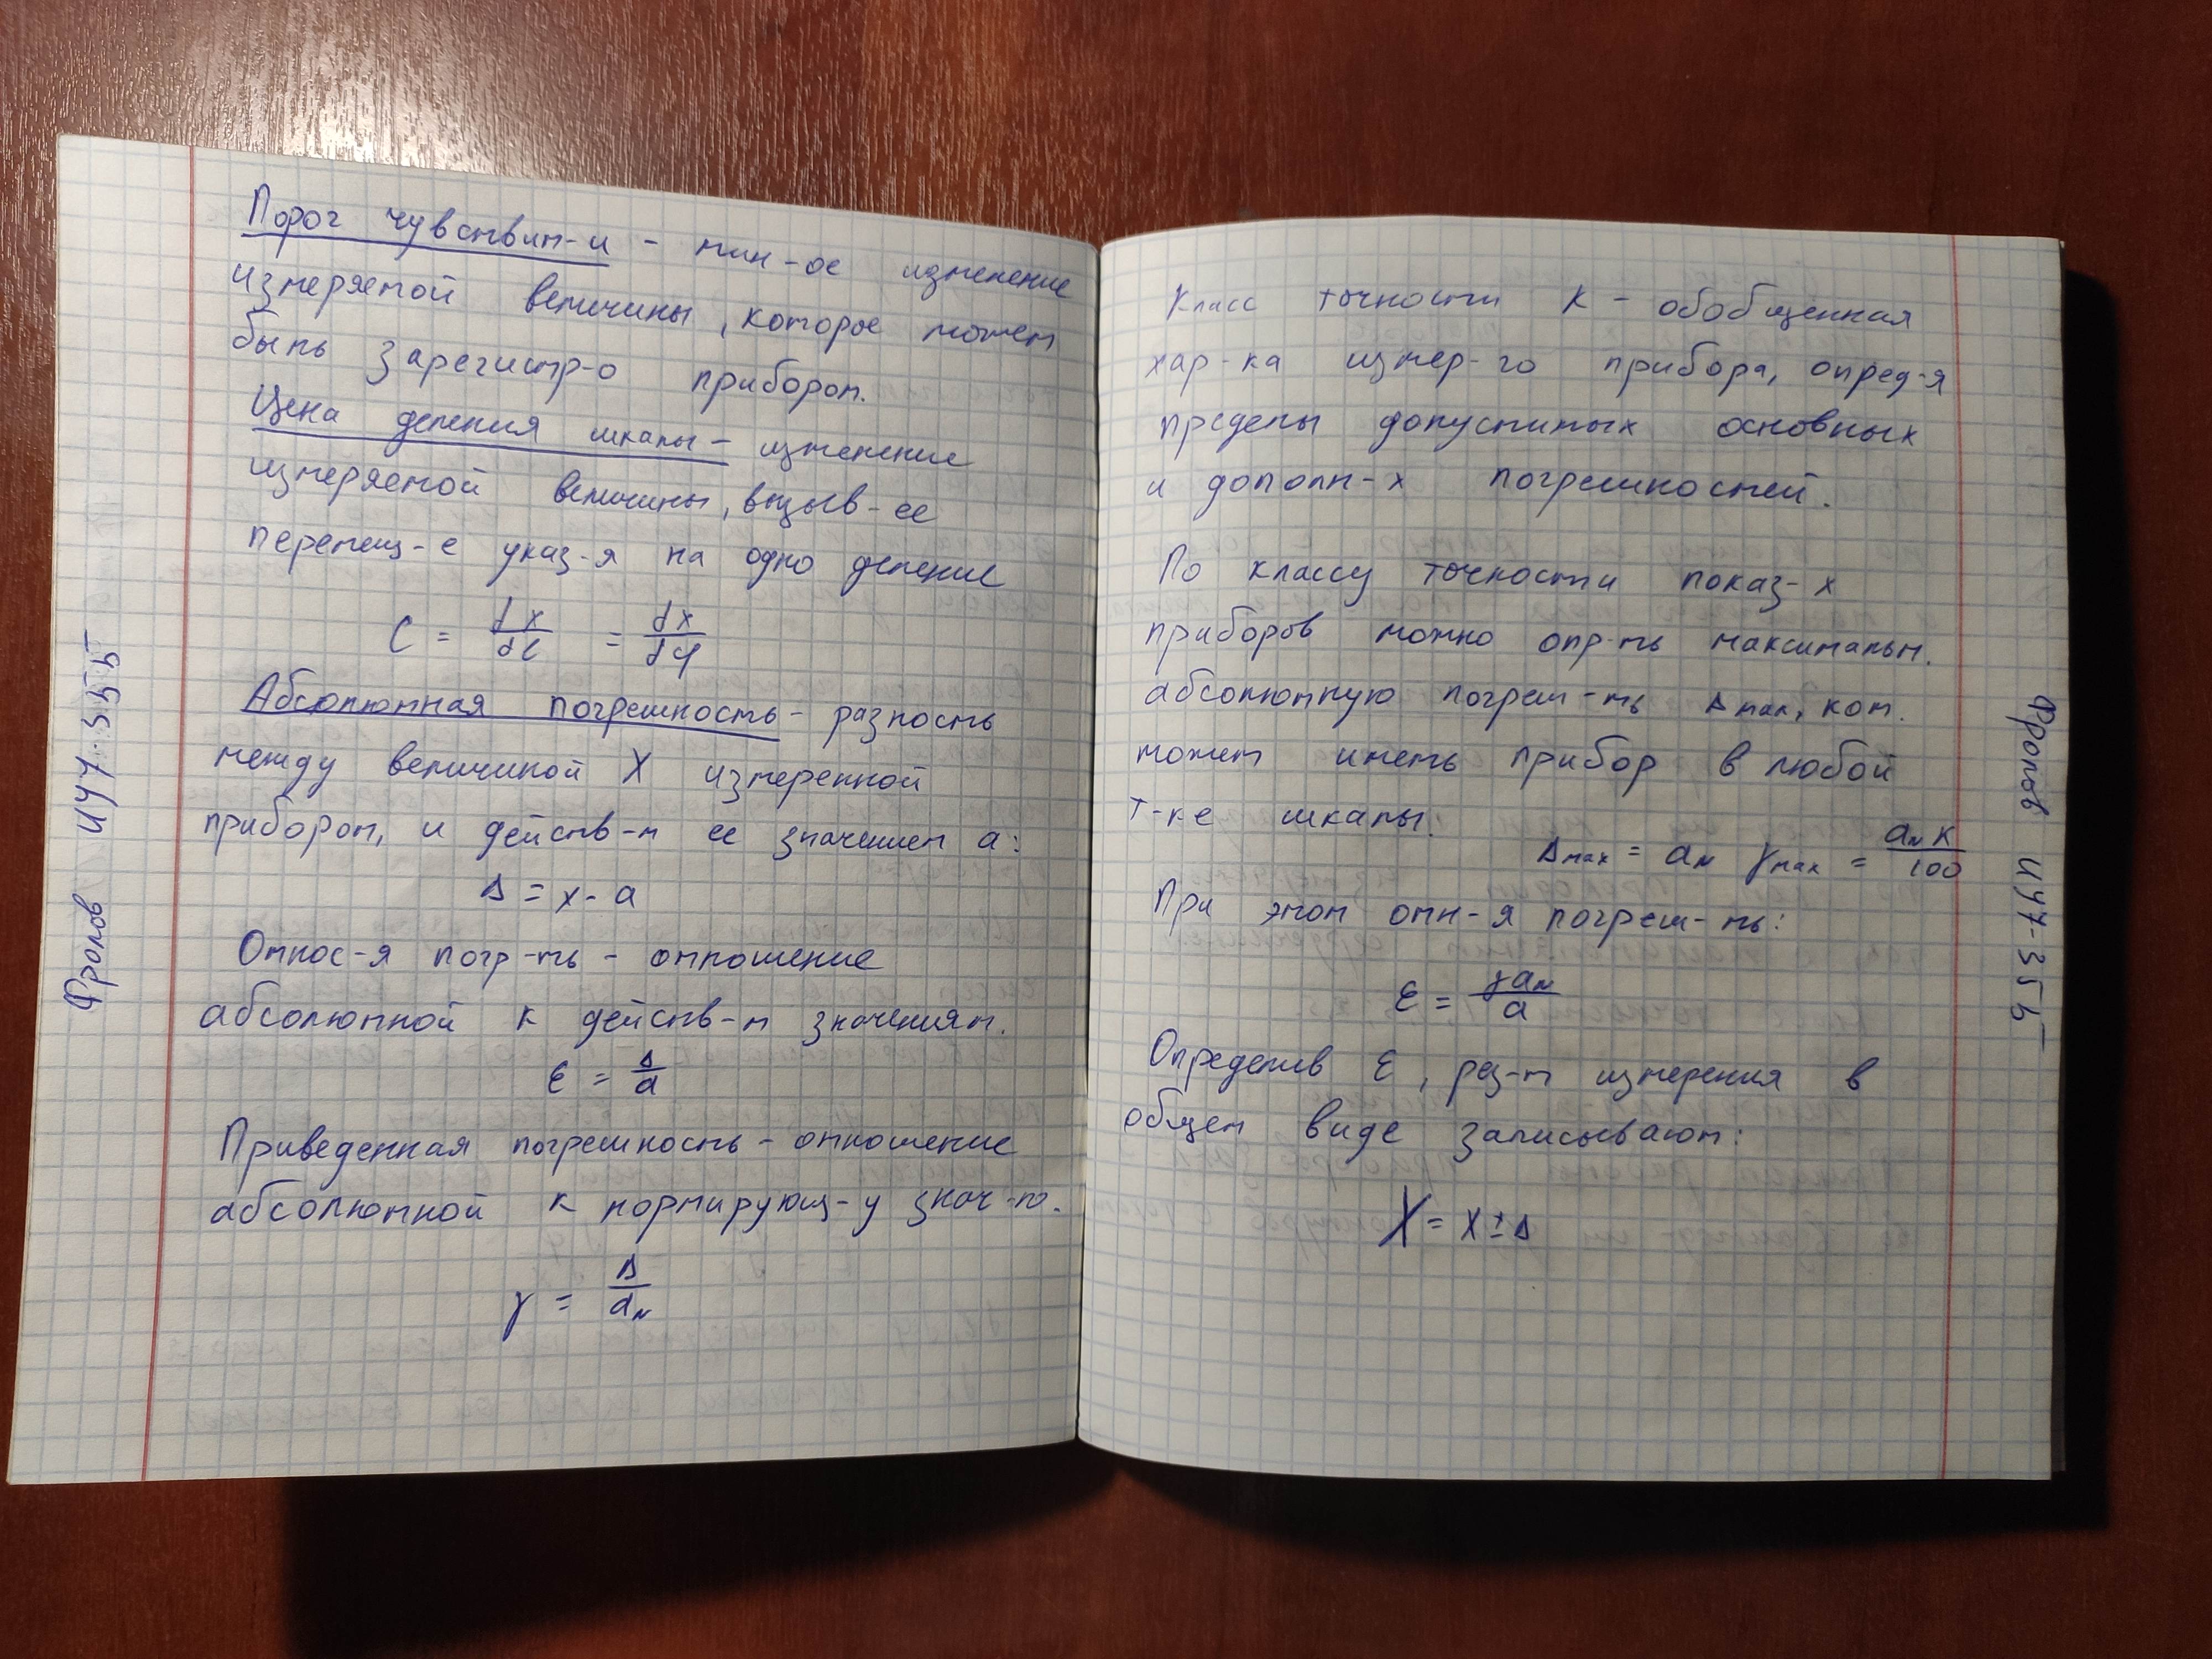 Порог чувствит-и - мин-ое изменение
измеряемой величины, которое может
быть зарегистр-о прибором.
Цена деления шкалы - изменение
измеряемой величины, вызыв-ее
перемещ-е указ-я на одно деление
C = dx/dl = dx/dφ
Абсолютная погрешность - разность
между величиной X измеренной
прибором, и действ-м ее значением a:
Δ = x - a
Относ-я погр-ть - отношение
абсолютной к действ-м значениям.
ε = Δ/a
Приведенная погрешность - отношение
абсолютной к нормирующ-у знач-ю.
γ = Δ/aₙ
Фролов ИУ7-35Б
Класс точности K - обобщенная
хар-ка измер-го прибора, опред-я
пределы допустимых основных
и дополн-х погрешностей.
По классу точности показ-х
приборов можно опр-ть максимальн.
абсолютную погреш-ть Δmax, кот.
может иметь прибор в любой
т-ке шкалы.
Δmax = aₙ γmax = aₙK/100
При этом отн-я погреш-ть:
ε = γaₙ/a
Определив ε, рез-т измерения в
общем виде записывают:
X = x ± Δ
Фролов ИУ7-35Б